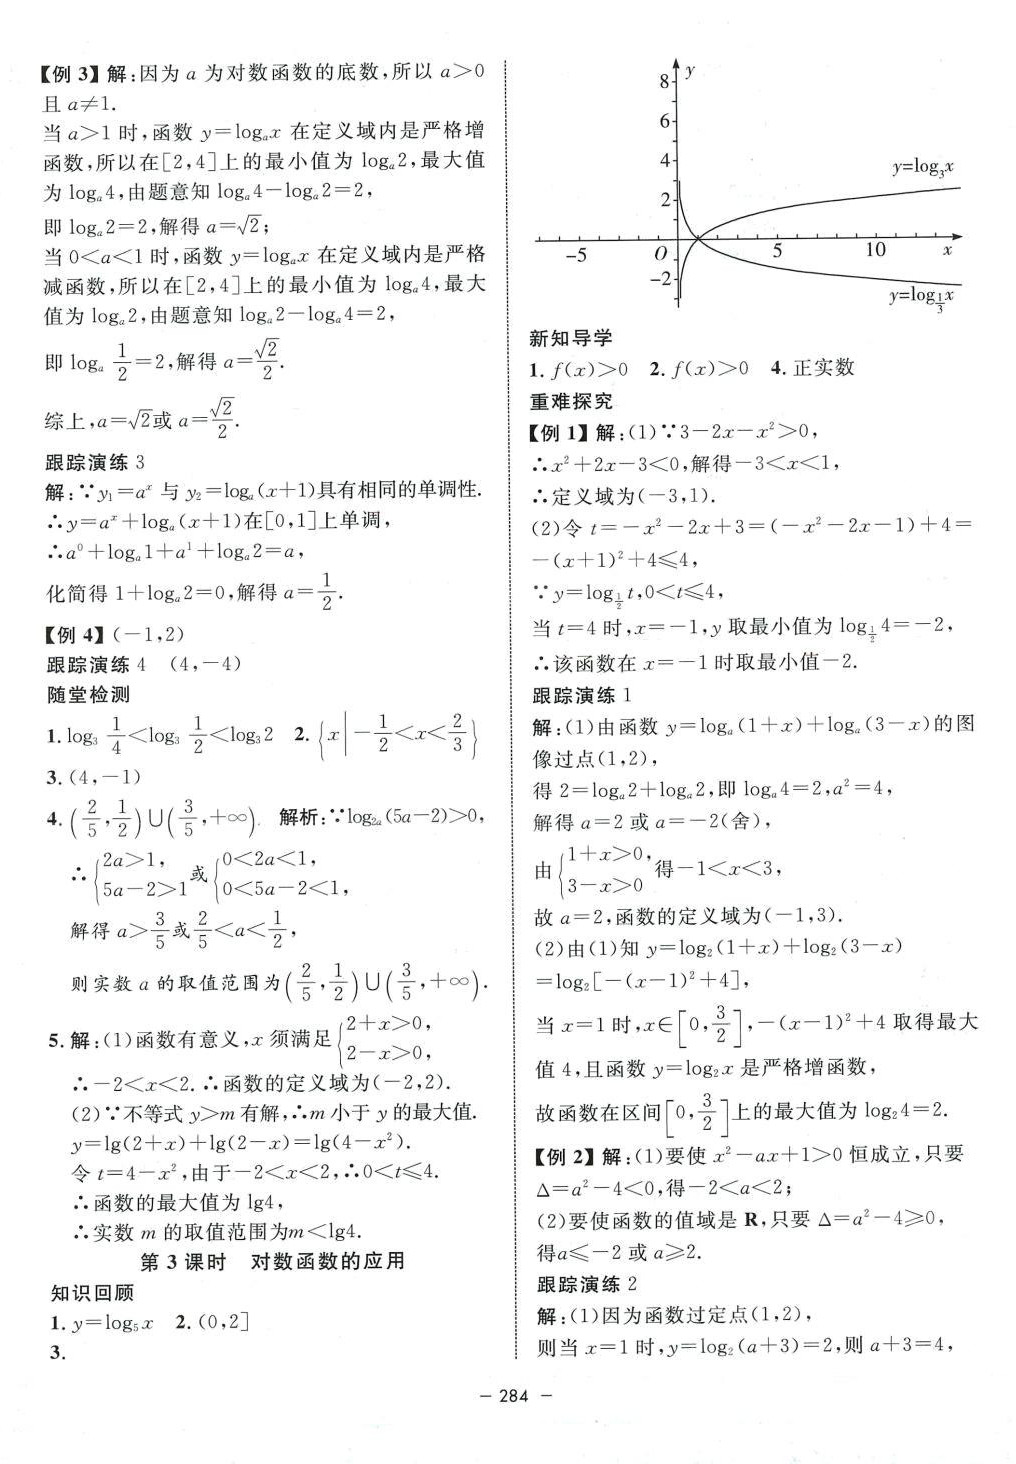 【例 3】解:因为 a 为对数函数的底数,所以 a>0
且 a≠1.
当 a>1 时,函数 y=logₐx 在定义域内是严格增
函数,所以在[2,4]上的最小值为 logₐ2,最大值
为 logₐ4,由题意知 logₐ4-logₐ2=2,
即 logₐ2=2,解得 a=√2;
当 0<a<1 时,函数 y=logₐx 在定义域内是严格
减函数,所以在[2,4]上的最小值为 logₐ4,最大
值为 logₐ2,由题意知 logₐ2-logₐ4=2,
即 logₐ 1/2=2,解得 a=√2/2.
综上,a=√2或 a=√2/2.
跟踪演练 3
解:∵y₁=aˣ 与 y₂=logₐ(x+1)具有相同的单调性.
∴y=aˣ+logₐ(x+1)在[0,1]上单调,
∴a⁰+logₐ1+a¹+logₐ2=a,
化简得 1+logₐ2=0,解得 a=1/2.
【例 4】(-1,2)
跟踪演练 4 (4,-4)
随堂检测
1. log₃ 1/4<log₃ 1/2<log₃2 2. {x|-1/2<x<2/3}
3. (4,-1)
4. (2/5,1/2)∪(3/5,+∞). 解析:∵log₂ₐ(5a-2)>0,
∴{2a>1, 5a-2>1 或 {0<2a<1, 0<5a-2<1,
解得 a>3/5或2/5<a<1/2,
则实数 a 的取值范围为(2/5,1/2)∪(3/5,+∞).
5. 解:(1)函数有意义,x 须满足{2+x>0, 2-x>0,
∴-2<x<2.∴函数的定义域为(-2,2).
(2)∵不等式 y>m 有解,∴m 小于 y 的最大值.
y=lg(2+x)+lg(2-x)=lg(4-x²).
令 t=4-x²,由于-2<x<2,∴0<t≤4.
∴函数的最大值为 lg4,
∴实数 m 的取值范围为m<lg4.
第 3 课时 对数函数的应用
知识回顾
1. y=log₅x 2. (0,2]
3.
y
8
6
4
2
-2
-5
O
5
10
x
y=log₃x
y=log_{1/3}x
新知导学
1. f(x)>0 2. f(x)>0 4. 正实数
重难探究
【例 1】解:(1)∵3-2x-x²>0,
∴x²+2x-3<0,解得-3<x<1,
∴定义域为(-3,1).
(2)令 t=-x²-2x+3=(-x²-2x-1)+4=
-(x+1)²+4≤4,
∵y=log_{1/2}t,0<t≤4,
当 t=4 时,x=-1,y 取最小值为 log_{1/2}4=-2,
∴该函数在 x=-1 时取最小值-2.
跟踪演练 1
解:(1)由函数 y=logₐ(1+x)+logₐ(3-x)的图
像过点(1,2),
得 2=logₐ2+logₐ2,即 logₐ4=2,a²=4,
解得 a=2 或 a=-2(舍),
由{1+x>0, 3-x>0 得-1<x<3,
故 a=2,函数的定义域为(-1,3).
(2)由(1)知 y=log₂(1+x)+log₂(3-x)
=log₂[-(x-1)²+4],
当 x=1 时,x∈[0,3/2],-(x-1)²+4 取得最大
值 4,且函数 y=log₂x 是严格增函数,
故函数在区间[0,3/2]上的最大值为 log₂4=2.
【例 2】解:(1)要使 x²-ax+1>0 恒成立,只要
Δ=a²-4<0,得-2<a<2;
(2)要使函数的值域是 R,只要 Δ=a²-4≥0,
得a≤-2 或 a≥2.
跟踪演练 2
解:(1)因为函数过定点(1,2),
则当 x=1 时,y=log₂(a+3)=2,则 a+3=4,
- 284 -